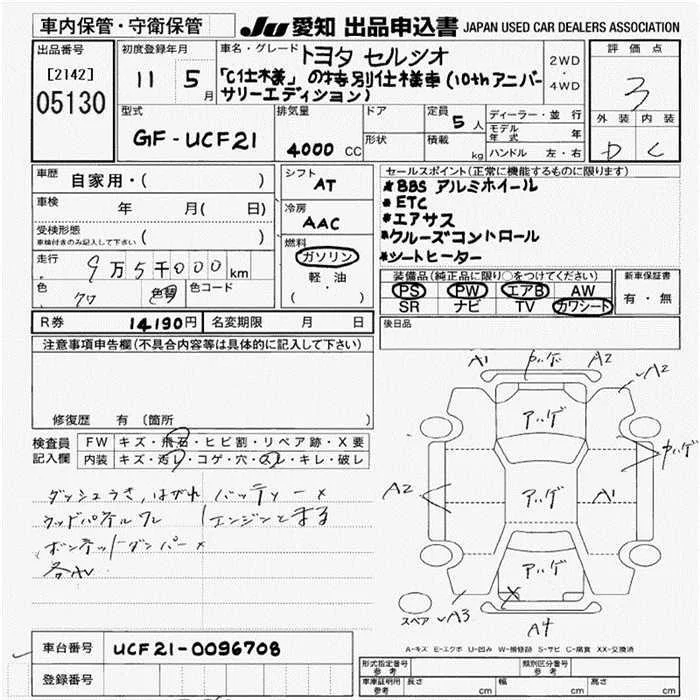 車内保管・守衛保管
JU 愛知 出品申込書 JAPAN USED CAR DEALERS ASSOCIATION
出品番号
[2142]
05130
初度登録年月
11 5月
車名・グレード トヨタ セルシオ
「C仕様」の特別仕様車(10thアニバーサリーエディション)
2WD・4WD
評価点
3
外装 内装
D C
型式
GF-UCF21
排気量
4000 CC
ドア
形状
定員 5人
積載 kg
ディーラー・並行
モデル年式 年
ハンドル 左・右
車歴 自家用・( )
車検 年 月( 日)
受検形態
車検付きのみ記入して下さい ( )
走行 9万5千000km
色 クロ 色替 色コード
シフト
AT
冷房
AAC
燃料
ガソリン
軽・油
( )
セールスポイント(正常に機能するものに限ります)
*BBS アルミホイール
*ETC
*エアサス
*クルーズコントロール
*シートヒーター
装備品(純正品に限り○をつけてください)
PS PW エアB AW
SR ナビ TV カワシート
新車保証書
有・無
R券 14190円 名変期限 月 日
後日品
注意事項申告欄(不具合内容等は具体的に記入して下さい)
修復歴 有(箇所 )
検査員記入欄
FW キズ・飛石・ヒビ割・リペア跡・X要
内装 キズ・汚レ・コゲ・穴・スレ・キレ・破レ
ダッシュうき、はがれ バッテリー×
ウッドパネルワレ エンジンとまる
ボンネットダンパー×
A1 A2
A2
アハゲ
A2 アハゲ A1
アハゲ
X
スペア A3
A4
A-キズ E-エクボ U-凹み W-補修跡 S-サビ C-腐食 XX-交換済
車台番号 UCF21-0096708
登録番号
形式指定番号 参考 類別区分番号 参考
車庫証明用 参考 長さ cm 幅 cm 高さ cm